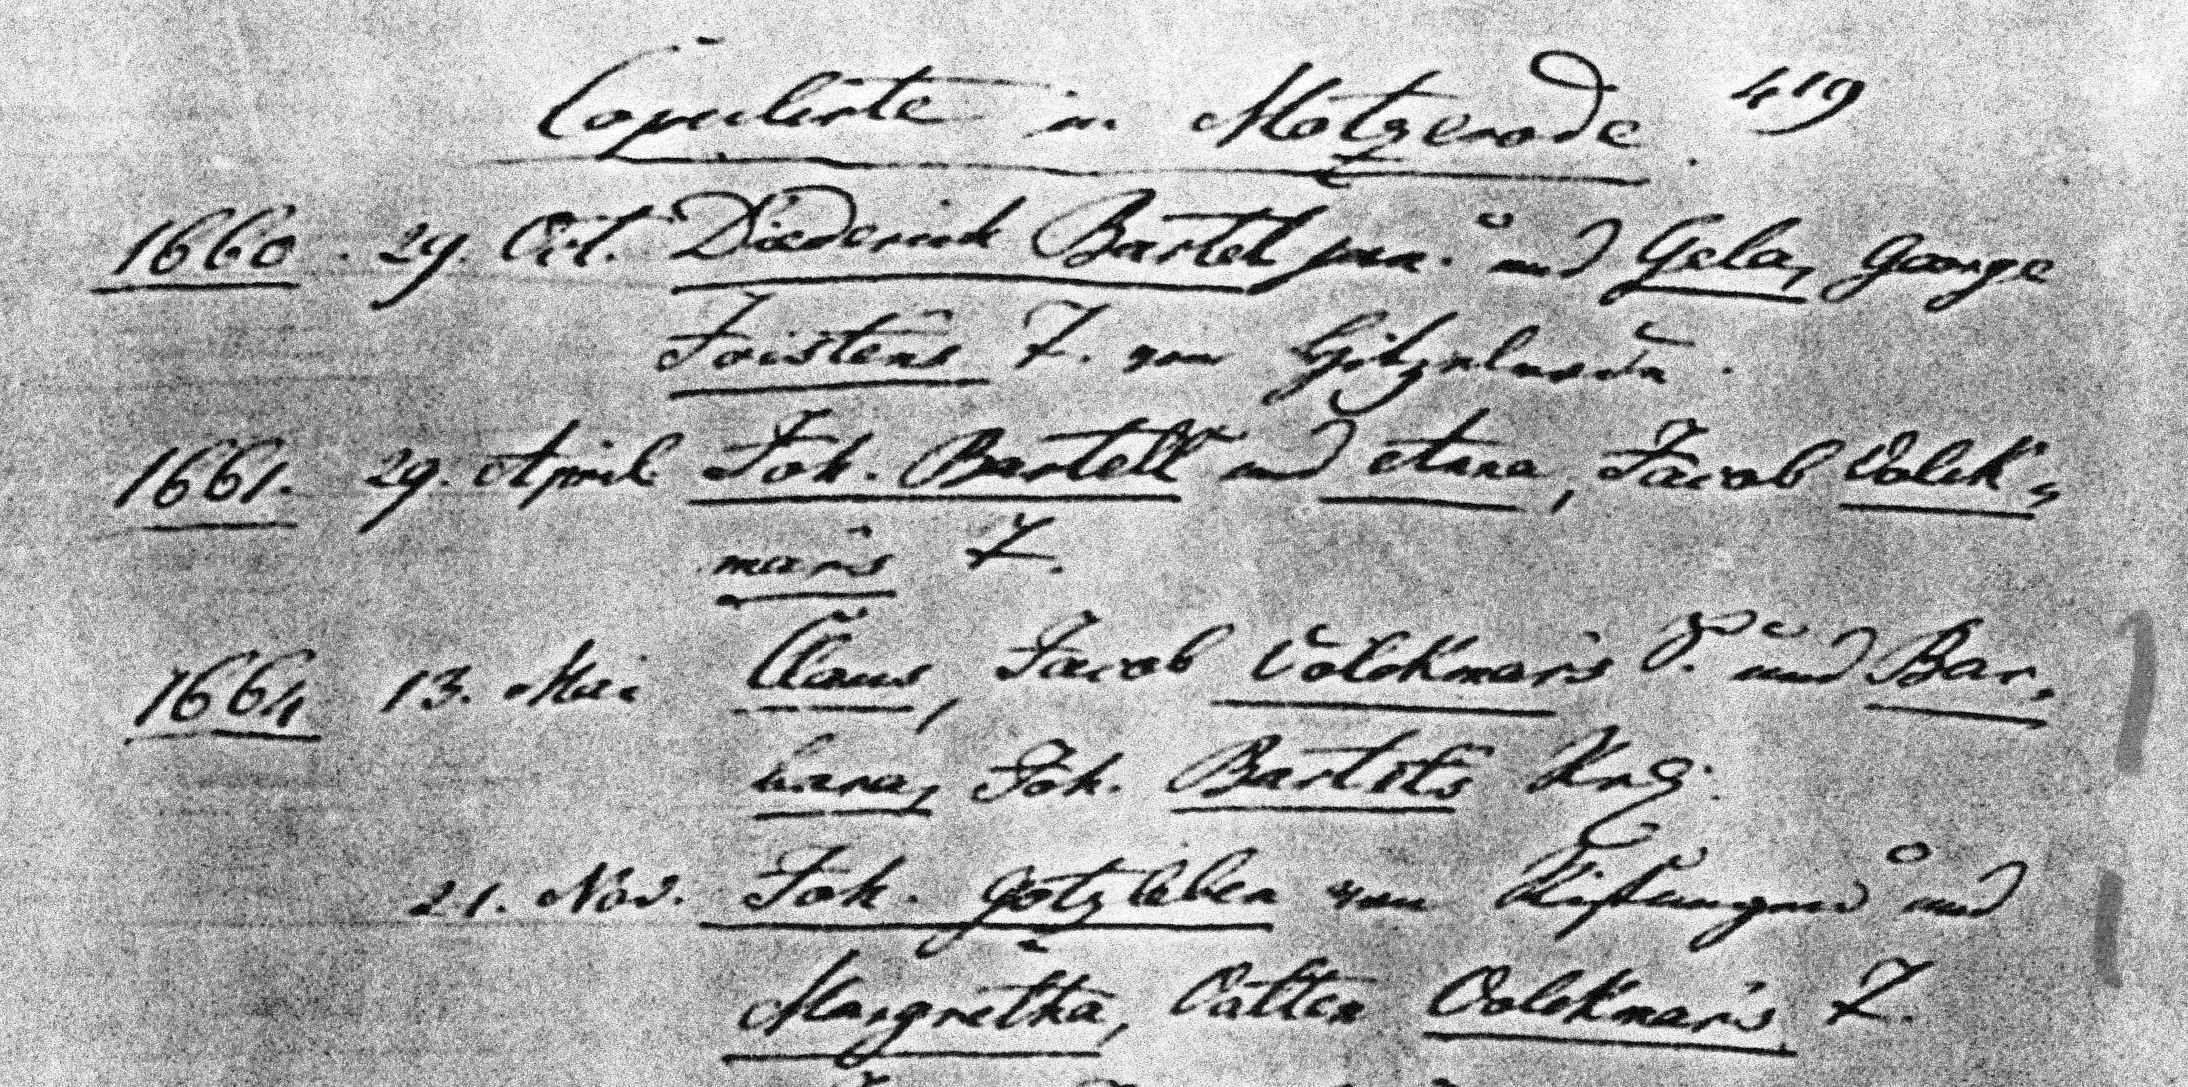 Copulirte in Motzerode. 419
1660. 29. Oct. Diederich Bartel jun. und Gela, George
Joistens T. von
1661. 29. April Joh. Bartell und Anna, Jacob Volck,
mars T.
1664 13. Mai Claus, Jacob Volckmars S. und Bar,
bara, Joh. Bartels
21. Nov. Joh. Gotzleben von und
Margretha, Valten Volckmars T.